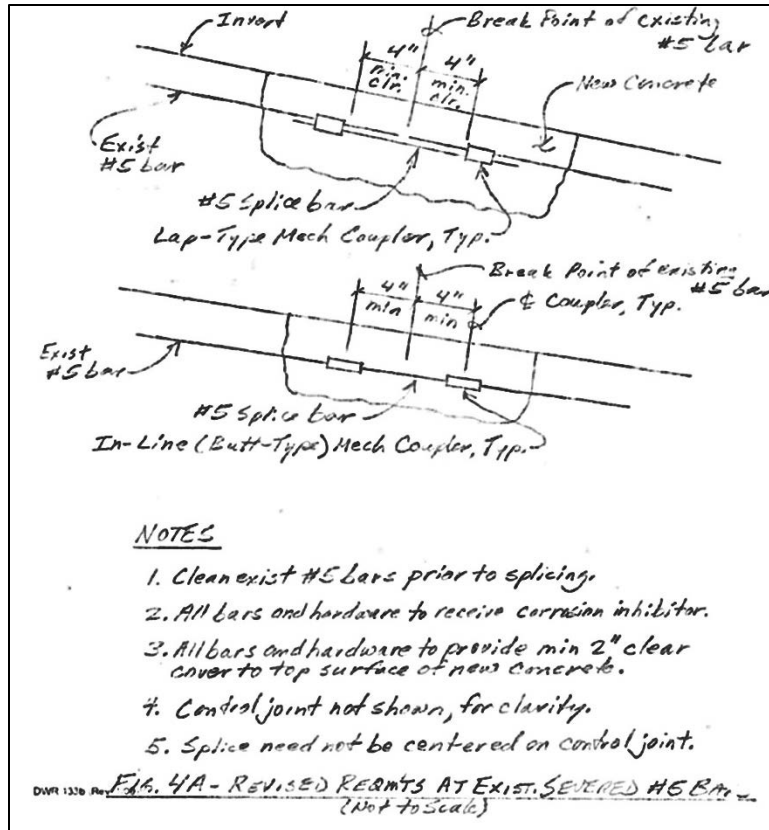 Invert
Break Point of existing
#5 bar
4" 4"
min. min.
clr. clr.
New Concrete
Exist
#5 bar
#5 Splice bar
Lap-Type Mech Coupler, Typ.
Break Point of existing
#5 bar
4" 4"
min min
℄ Coupler, Typ.
Exist
#5 bar
#5 Splice bar
In-Line (Butt-Type) Mech Coupler, Typ.
NOTES
1. Clean exist #5 bars prior to splicing.
2. All bars and hardware to receive corrosion inhibitor.
3. All bars and hardware to provide min 2" clear
cover to top surface of new concrete.
4. Control joint not shown, for clarity.
5. Splice need not be centered on control joint.
DWR 133b Rev
FIG. 4A - REVISED REQMTS AT EXIST. SEVERED #5 BAR
(Not to Scale)